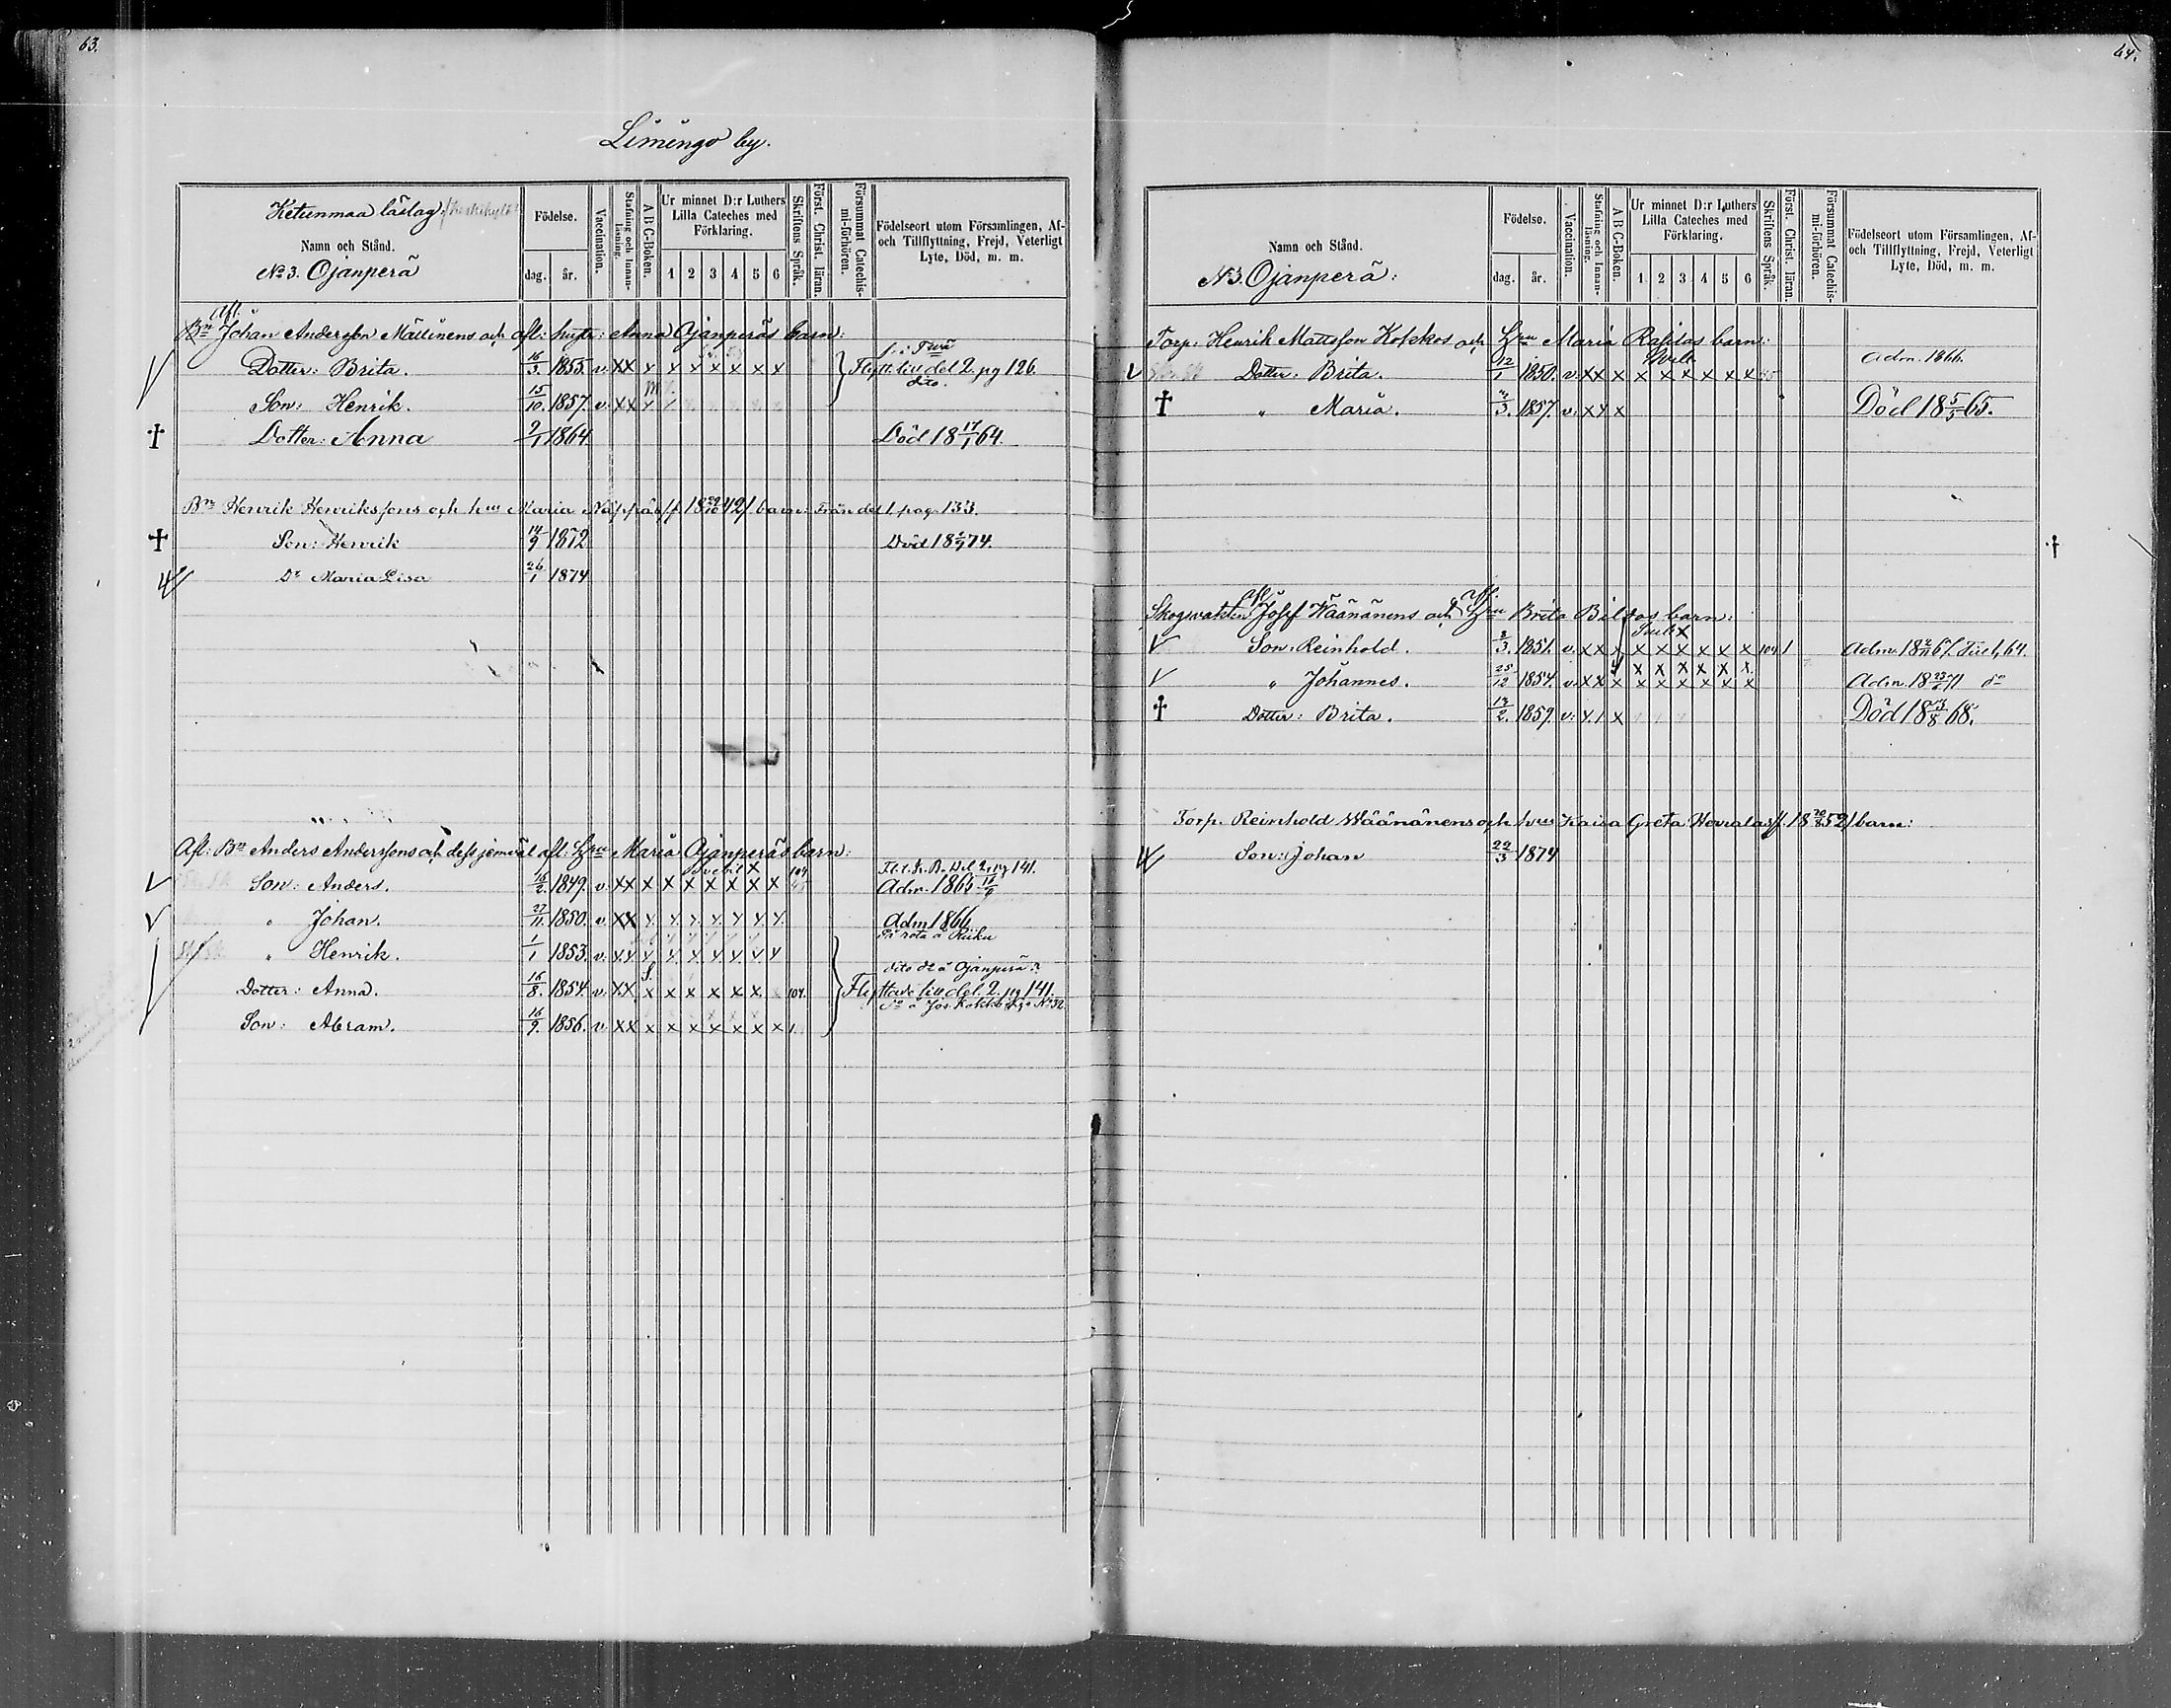 63.
Limingo by.
Ketunmaa läslag
Namn och Stånd.
No 3. Ojanperä
Födelse.
dag. år.
Vaccination.
Stafning och Innan-läsning.
A B C-Boken.
Ur minnet D:r Luthers
Lilla Cateches med
Förklaring.
1 2 3 4 5 6
Skriftens Språk.
Först. Christ. läran.
Försummat Catechis-mi-förhören.
Födelseort utom Församlingen, Af-
och Tillflyttning, Frejd, Veterligt
Lyte, Död, m. m.
Afl.
Bn Johan Andersson Mällinens och afl: hustr: Anna Ojanperäs barn:
Dotter: Brita. 16/3. 1855. v. XX x x x x x x x Flytt. till del 2. pg 126.
dito.
Son: Henrik. 15/10. 1857. v. XX
Dotter: Anna 9/1 1864 Död 18 17/1 64.
Bn Henrik Henrikssons och hu Maria barn: Från del 1. pag. 133.
Son: Henrik 14/9 1872 Död 18 74.
Dr Maria Lisa 26/1 1874
Afl: Bn Anders Anderssons och dess jemväl afl: Hru Maria Ojanperäs barn:
Fl. t. K. B. Del. 2, pg 141.
Son: Anders. 16/2. 1849. v. XX X X X X X X X 104 Adm. 1865
" Johan. 27/11. 1850. v. XX x x x x x x x Adm 1866
" Henrik. 1/1 1853. v. xx x x x x x x x
S.
Dotter: Anna. 16/8. 1854. v. XX x x x x x x 104. Flyttade till del. 2. pg 141.
Son: Abram. 16/9. 1856. v. XX x x x x x x x 1.
64.
Namn och Stånd.
N 3. Ojanperä:
Födelse.
dag. år.
Vaccination.
Stafning och Innan-läsning.
A B C-Boken.
Ur minnet D:r Luthers
Lilla Cateches med
Förklaring.
1 2 3 4 5 6
Skriftens Språk.
Först. Christ. läran.
Försummat Catechis-mi-förhören.
Födelseort utom Församlingen, Af-
och Tillflyttning, Frejd, Veterligt
Lyte, Död, m. m.
Torp. Henrik Mattsson Kokkos och Hru Maria barn:
Dotter: Brita. 12/1 1850. v. XX x x x x x x x Adm. 1866.
" Maria. 1857. v. xx x Död 18 5/5 65.
Afl afl.
Skogvakten Josef Wäänänens och Hru Brita barn:
Son: Reinhold. 1851. v. XX x x x x x x x 104 1
" Johannes. 25/12 1854. v. XX x x x x x x x Adm. 18 71 do
Dotter: Brita. 1859. v: x Död 18 68.
Torp. Reinhold Wäänänens och hu Kaisa Greta barn:
Son: Johan 22/3 1874